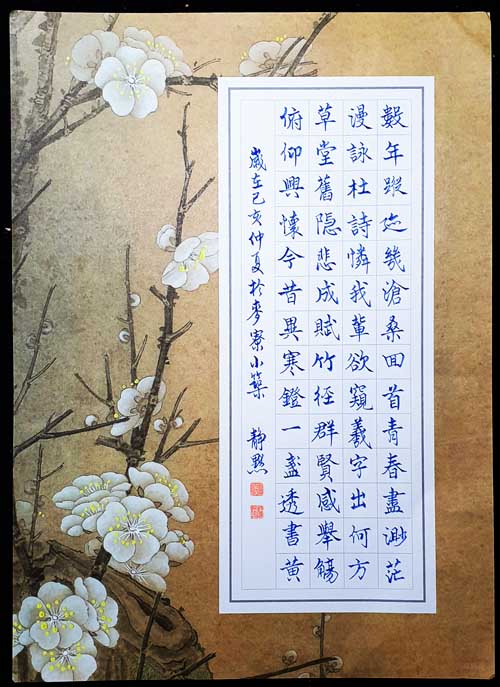 數年蹤迹幾滄桑回首青春盡渺茫
漫詠杜詩憐我輩欲窺羲字出何方
草堂舊隐悲成賦竹径群賢感舉觴
俯仰興懷今昔異寒鐙一盞透書黃
歲在己亥仲夏於麥寮小築 靜默